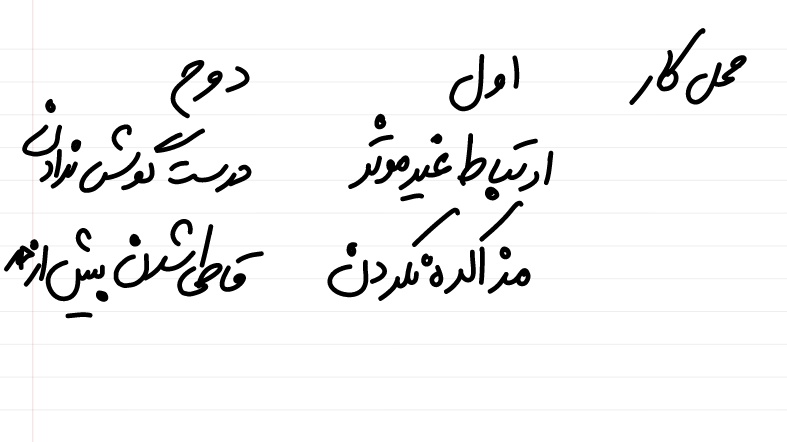 محل کار اول دوم
ارتباط غیرموثر درست گوش ندادن
مذاکره نکردن قاطی شدن بیش از حد